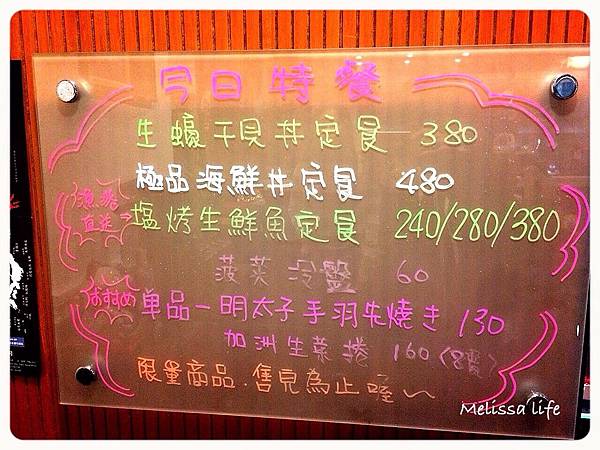 今日特餐
生蠔干貝丼定食 380
極品海鮮丼定食 480
漁港直送
塩烤生鮮魚定食 240/280/380
菠菜冷盤 60
おすすめ
単品-明太子手羽先燒き 130
加洲生菜捲 160(8貫)
限量商品.售完為止喔~
Melissa life